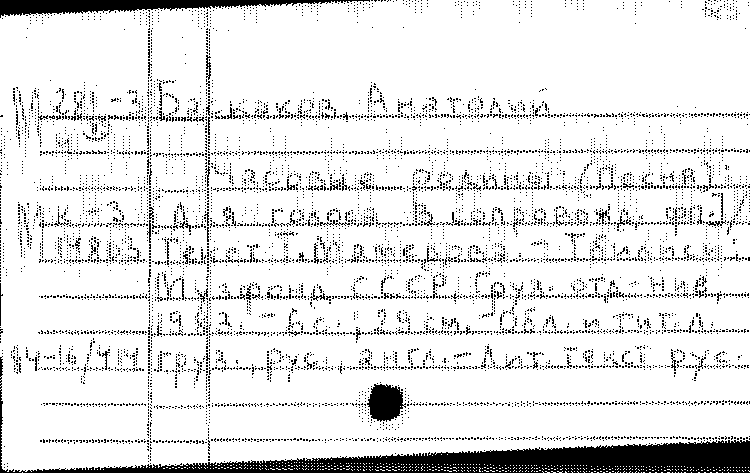 М 281-3 Баскаков, Анатолий
Часовые родины: (Песня):
К-3 Для голоса в сопровожд. фп.]/
14863 Текст Т. Мамедова. - Тбилиси:
Музфонд СССР, Груз. отд-ние,
1983. - 6 с.; 29 см. - Обл. и тит. л.
84-16/414 груз., рус., англ. - Лит. текст рус.